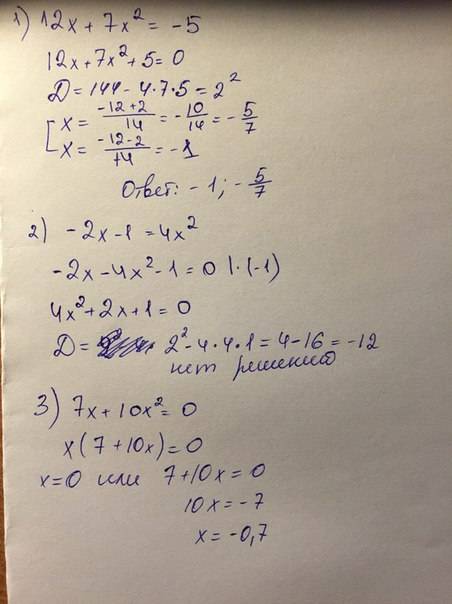 1) 12x + 7x² = -5
12x + 7x² + 5 = 0
D = 144 - 4·7·5 = 2²
[ x = (-12+2)/14 = -10/14 = -5/7
x = (-12-2)/14 = -1
Ответ: -1; -5/7
2) -2x - 1 = 4x²
-2x - 4x² - 1 = 0 |·(-1)
4x² + 2x + 1 = 0
D = 2² - 4·4·1 = 4 - 16 = -12
нет решений
3) 7x + 10x² = 0
x(7 + 10x) = 0
x = 0 или 7 + 10x = 0
10x = -7
x = -0,7